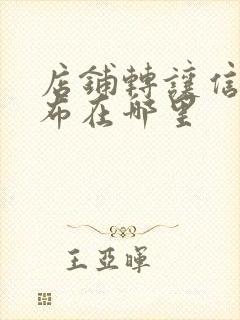 店鋪轉讓信
布在哪里
王亞暉